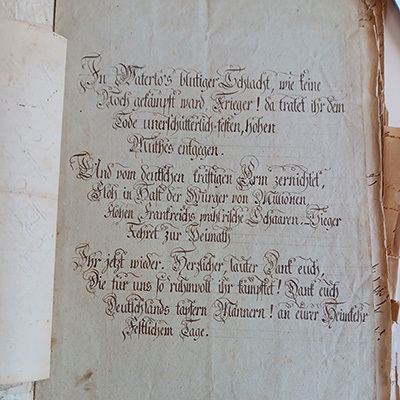 In Waterlo's blutiger Schlacht, wie keine
Noch gekämpft ward, Krieger! da tratet ihr dem
Tode unerschütterlich-festen, hohen
Muthes entgegen.
Und vom deutschen kräftigen Arm zernichtet,
Floh in Hast der Würger von Millionen,
Flohen Frankreichs prahl'rische Schaaren. Sieger
Kehret zur Heimath
Ihr jetzt wieder. Herzlicher, lauter Dank euch,
Die für uns so ruhmvoll ihr kämpftet! Dank euch
Deutschlands tapfern Männern! an eurer Heimkehr
Festlichem Tage.